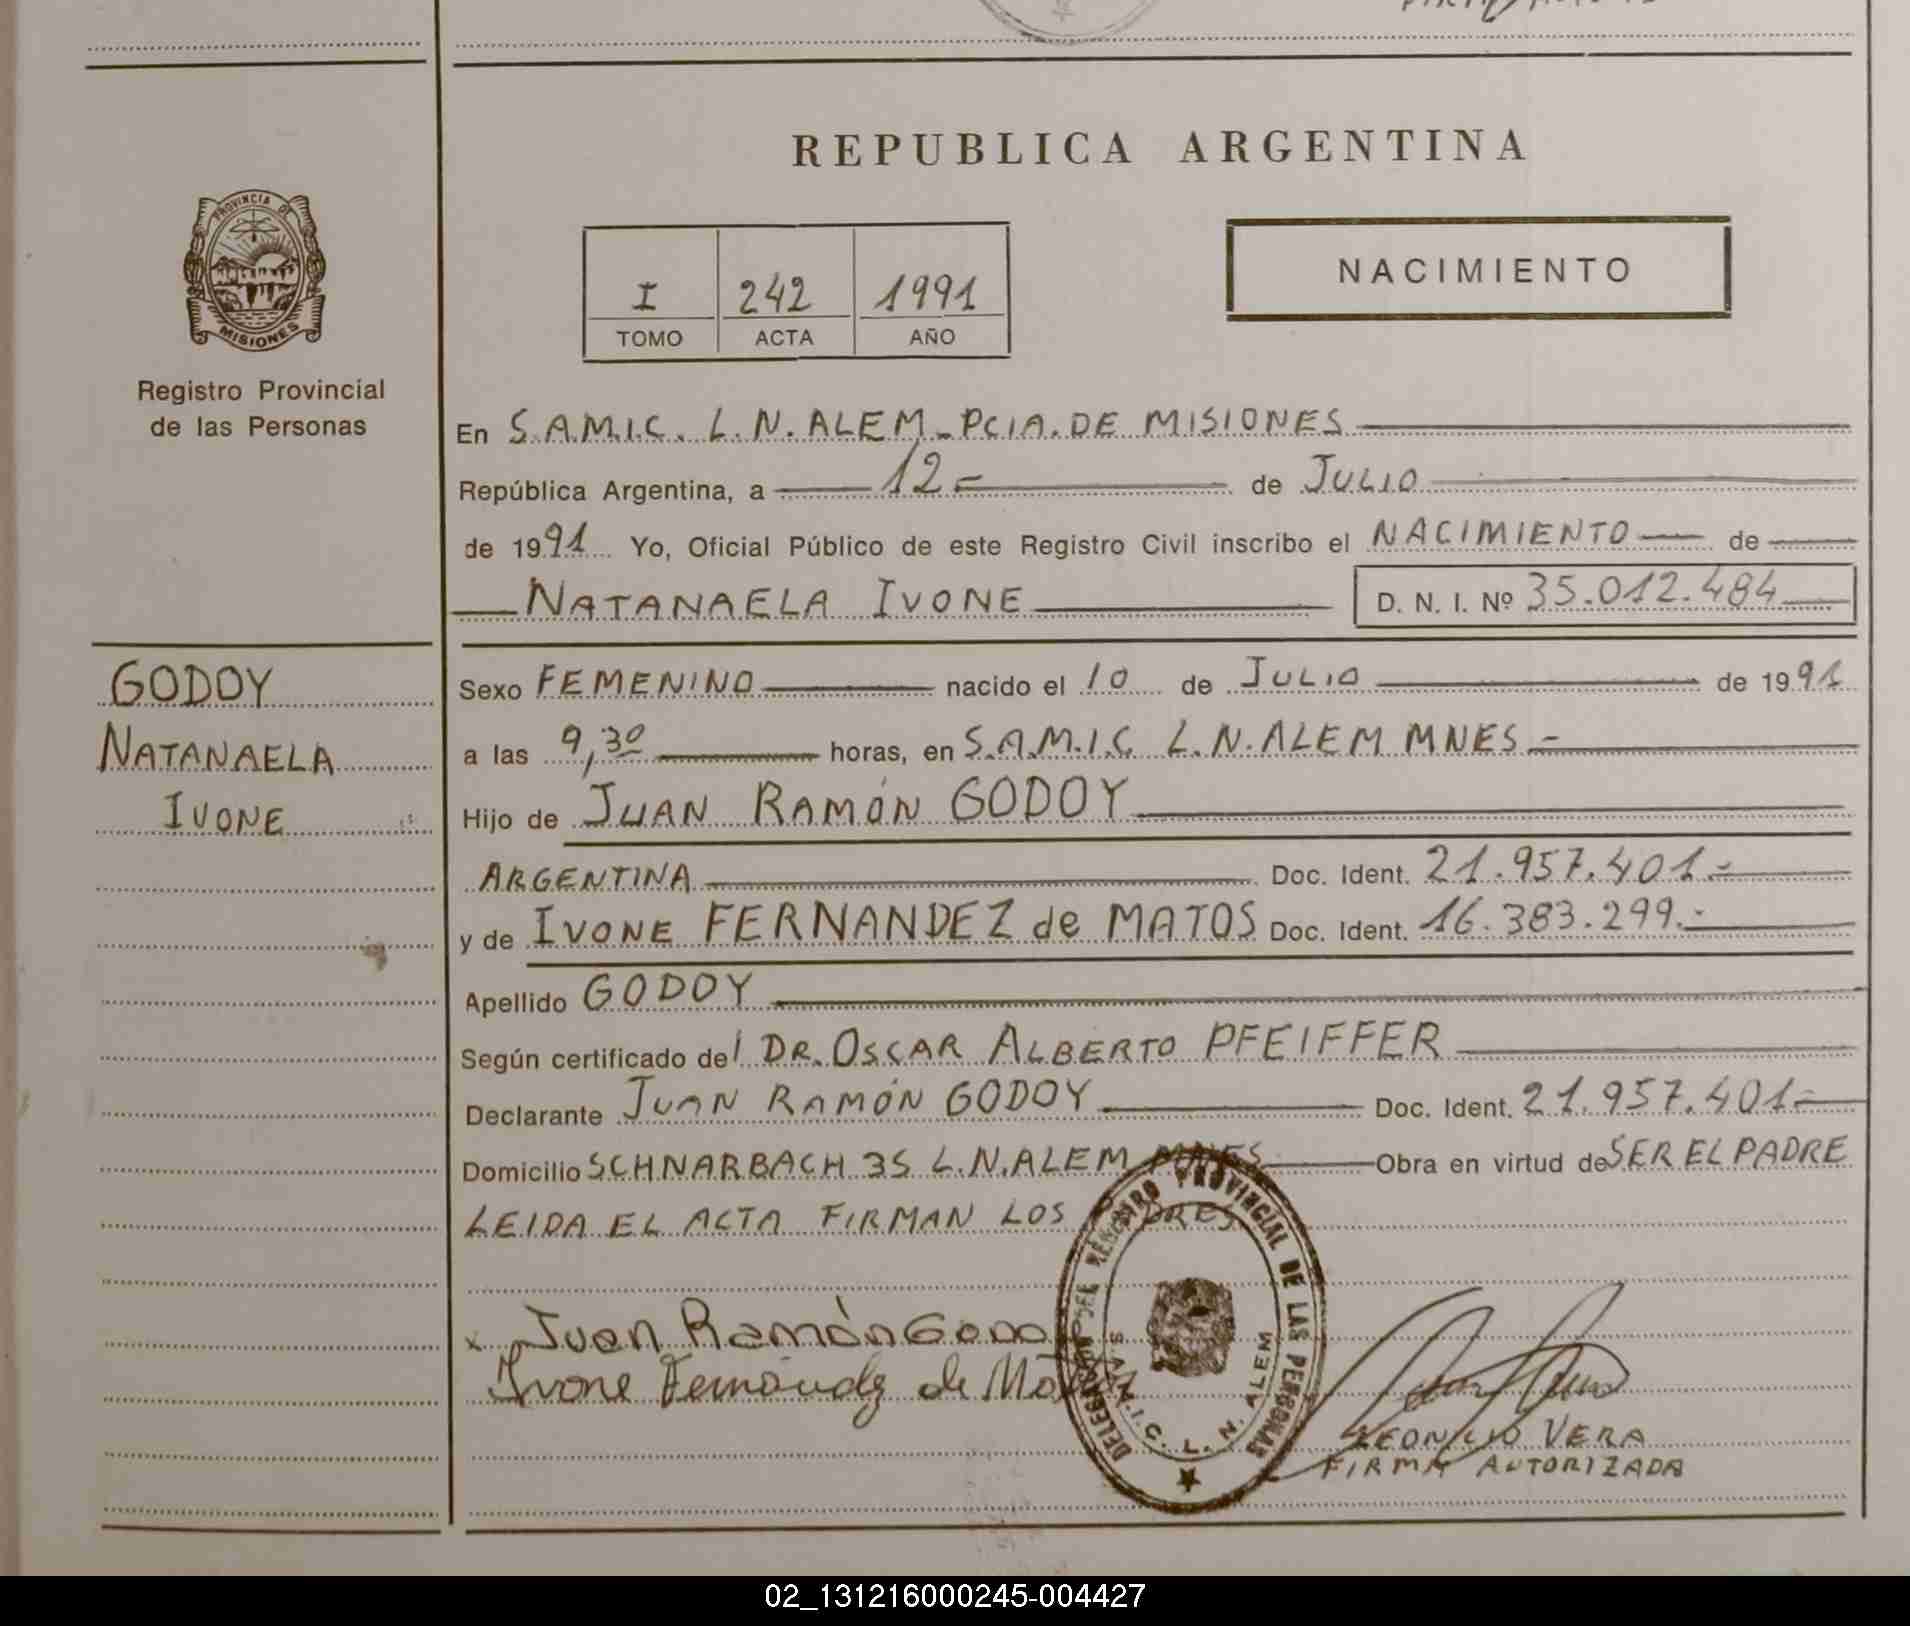 REPUBLICA ARGENTINA
PROVINCIA DE
MISIONES
Registro Provincial
de las Personas
I 242 1991
TOMO ACTA AÑO
NACIMIENTO
En S.A.M.I.C. L.N. ALEM - PCIA. DE MISIONES
República Argentina, a 12- de JULIO
de 1991 Yo, Oficial Público de este Registro Civil inscribo el NACIMIENTO de
NATANAELA IVONE D. N. I. Nº 35.012.484
GODOY
NATANAELA
IVONE
Sexo FEMENINO nacido el 10 de JULIO de 1991
a las 9,30 horas, en S.A.M.I.C. L.N. ALEM MNES -
Hijo de JUAN RAMÓN GODOY
ARGENTINA Doc. Ident. 21.957.401.-
y de IVONE FERNANDEZ de MATOS Doc. Ident. 16.383.299.-
Apellido GODOY
Según certificado del DR. OSCAR ALBERTO PFEIFFER
Declarante JUAN RAMÓN GODOY Doc. Ident. 21.957.401-
Domicilio SCHNARBACH 35 L.N. ALEM MNES Obra en virtud de SER EL PADRE
LEIDA EL ACTA FIRMAN LOS PADRES
x Juan Ramón Godo
Ivone Fernández de Mato
DELEGACION DEL REGISTRO PROVINCIAL DE LAS PERSONAS
S.A.M.I.C. L. N. ALEM
LEONCIO VERA
FIRMA AUTORIZADA
02_131216000245-004427